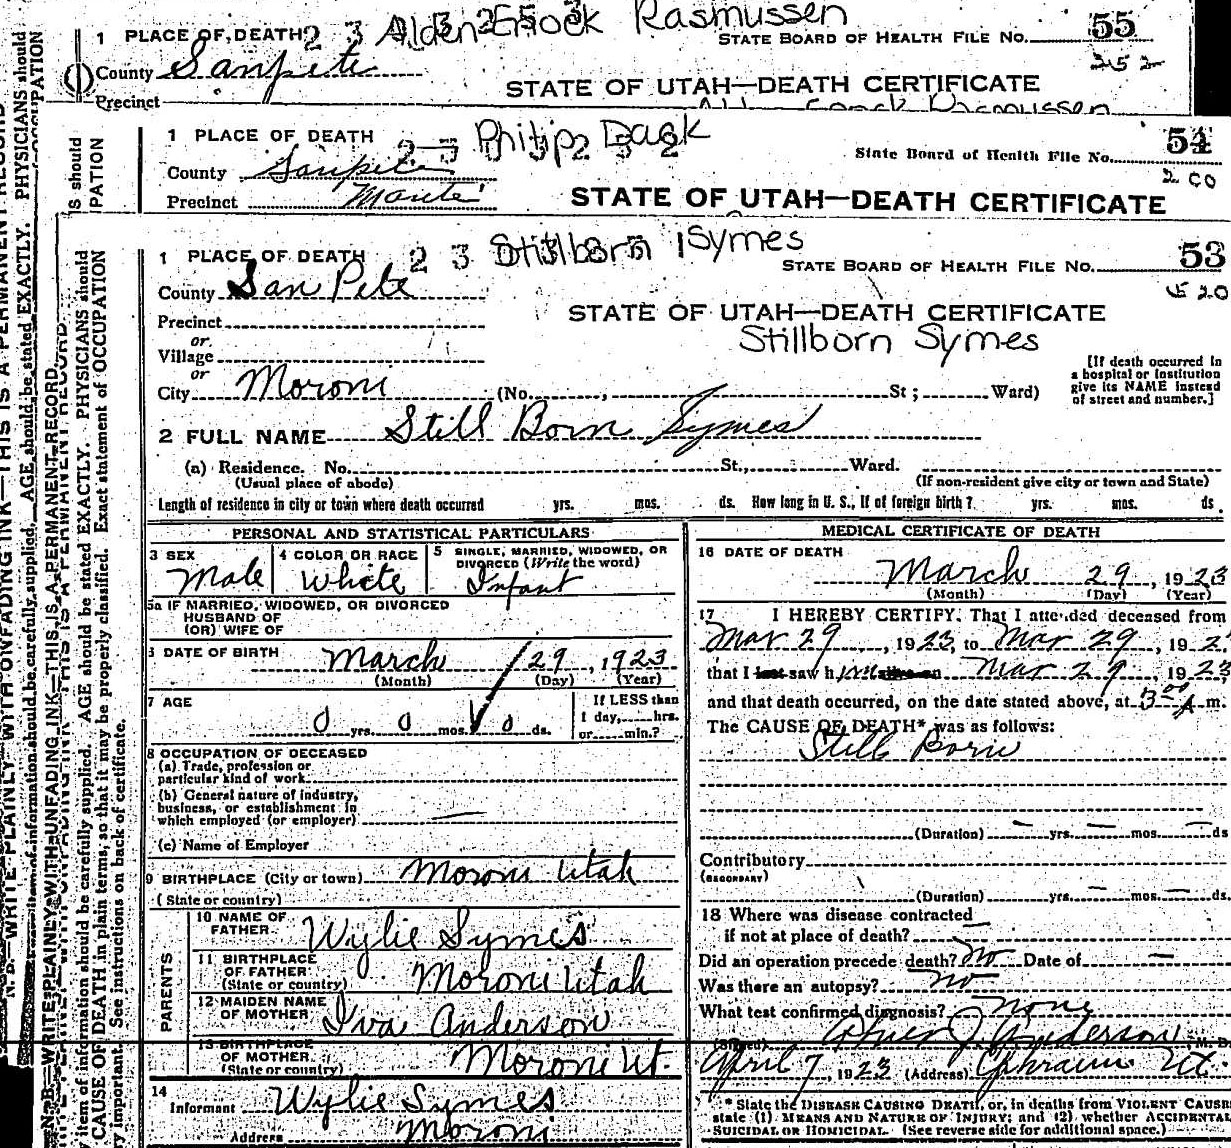 Alden Enock Rasmussen
1 PLACE OF DEATH 2 3
STATE BOARD OF HEALTH FILE No. 55
County Sanpete
252
STATE OF UTAH—DEATH CERTIFICATE
Precinct
1 PLACE OF DEATH 2 3 Philip Dack
State Board of Health File No. 54
County Sanpete
200
Precinct Manti
STATE OF UTAH—DEATH CERTIFICATE
1 PLACE OF DEATH 2 3 Stillborn Symes
STATE BOARD OF HEALTH FILE No. 53
County San Pete
20
Precinct
STATE OF UTAH—DEATH CERTIFICATE
or
Stillborn Symes
Village
or
City Moroni (No. , St ; Ward)
[If death occurred in
a hospital or institution
give its NAME instead
of street and number.]
2 FULL NAME Still Born Symes
(a) Residence. No. St., Ward.
(Usual place of abode) (If non-resident give city or town and State)
Length of residence in city or town where death occurred yrs. mos. ds. How long in U. S., If of foreign birth? yrs. mos. ds.
PERSONAL AND STATISTICAL PARTICULARS
3 SEX Male
4 COLOR OR RACE White
5 SINGLE, MARRIED, WIDOWED, OR
DIVORCED (Write the word)
Infant
5a IF MARRIED, WIDOWED, OR DIVORCED
HUSBAND OF
(OR) WIFE OF
DATE OF BIRTH March 29, 1923
(Month) (Day) (Year)
7 AGE
0 yrs. 0 mos. 0 ds.
If LESS than
1 day, hrs.
or min.?
8 OCCUPATION OF DECEASED
(a) Trade, profession or
particular kind of work
(b) General nature of industry,
business, or establishment in
which employed (or employer)
(c) Name of Employer
9 BIRTHPLACE (City or town) Moroni Utah
(State or country)
PARENTS
10 NAME OF
FATHER Wylie Symes
11 BIRTHPLACE
OF FATHER
(State or country) Moroni Utah
12 MAIDEN NAME
OF MOTHER Iva Anderson
13 BIRTHPLACE
OF MOTHER
(State or country) Moroni Ut.
14
Informant Wylie Symes
Address Moroni
MEDICAL CERTIFICATE OF DEATH
16 DATE OF DEATH
March 29, 1923
(Month) (Day) (Year)
17 I HEREBY CERTIFY, That I attended deceased from
Mar 29, 1923, to Mar 29, 192
that I last saw h im alive on Mar 29, 1923
and that death occurred, on the date stated above, at 3 00 A m.
The CAUSE OF DEATH* was as follows:
Still Born
(Duration) — yrs. — mos. — ds
Contributory
(SECONDARY)
(Duration) yrs. — mos. — ds.
18 Where was disease contracted
if not at place of death? —
Did an operation precede death? No Date of —
Was there an autopsy? no
What test confirmed diagnosis? none
(Signed) J Anderson, M. D.
April 7, 1923 (Address) Ephraim Ut
* State the DISEASE CAUSING DEATH, or, in deaths from VIOLENT CAUSES
state (1) MEANS AND NATURE OF INJURY; and (2) whether ACCIDENTAL
SUICIDAL OR HOMICIDAL. (See reverse side for additional space.)
N. B.—WRITE PLAINLY WITH UNFADING INK—THIS IS A PERMANENT RECORD
item of information should be carefully supplied. AGE should be stated EXACTLY. PHYSICIANS should
CAUSE OF DEATH in plain terms, so that it may be properly classified. Exact statement of OCCUPATION
important. See instructions on back of certificate.